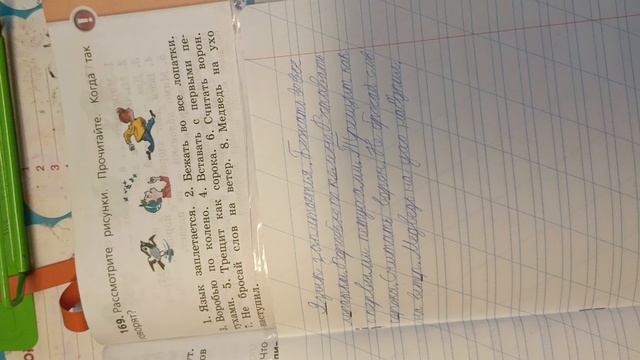 169. Рассмотрите рисунки. Прочитайте. Когда так
говорят?
1. Язык заплетается. 2. Бежать во все лопатки.
3. Воробью по колено. 4. Вставать с первыми пе-
тухами. 5. Трещит как сорока. 6. Считать ворон.
7. Не бросай слов на ветер. 8. Медведь на ухо
наступил.
Язык заплетается. Бежать во все
лопатки. Воробью по колено. Вставать
с первыми петухами. Трещит как
сорока. Считать ворон. Не бросай слов
на ветер. Медведь на ухо
ут.
ов
Что
пи-
1
2
3